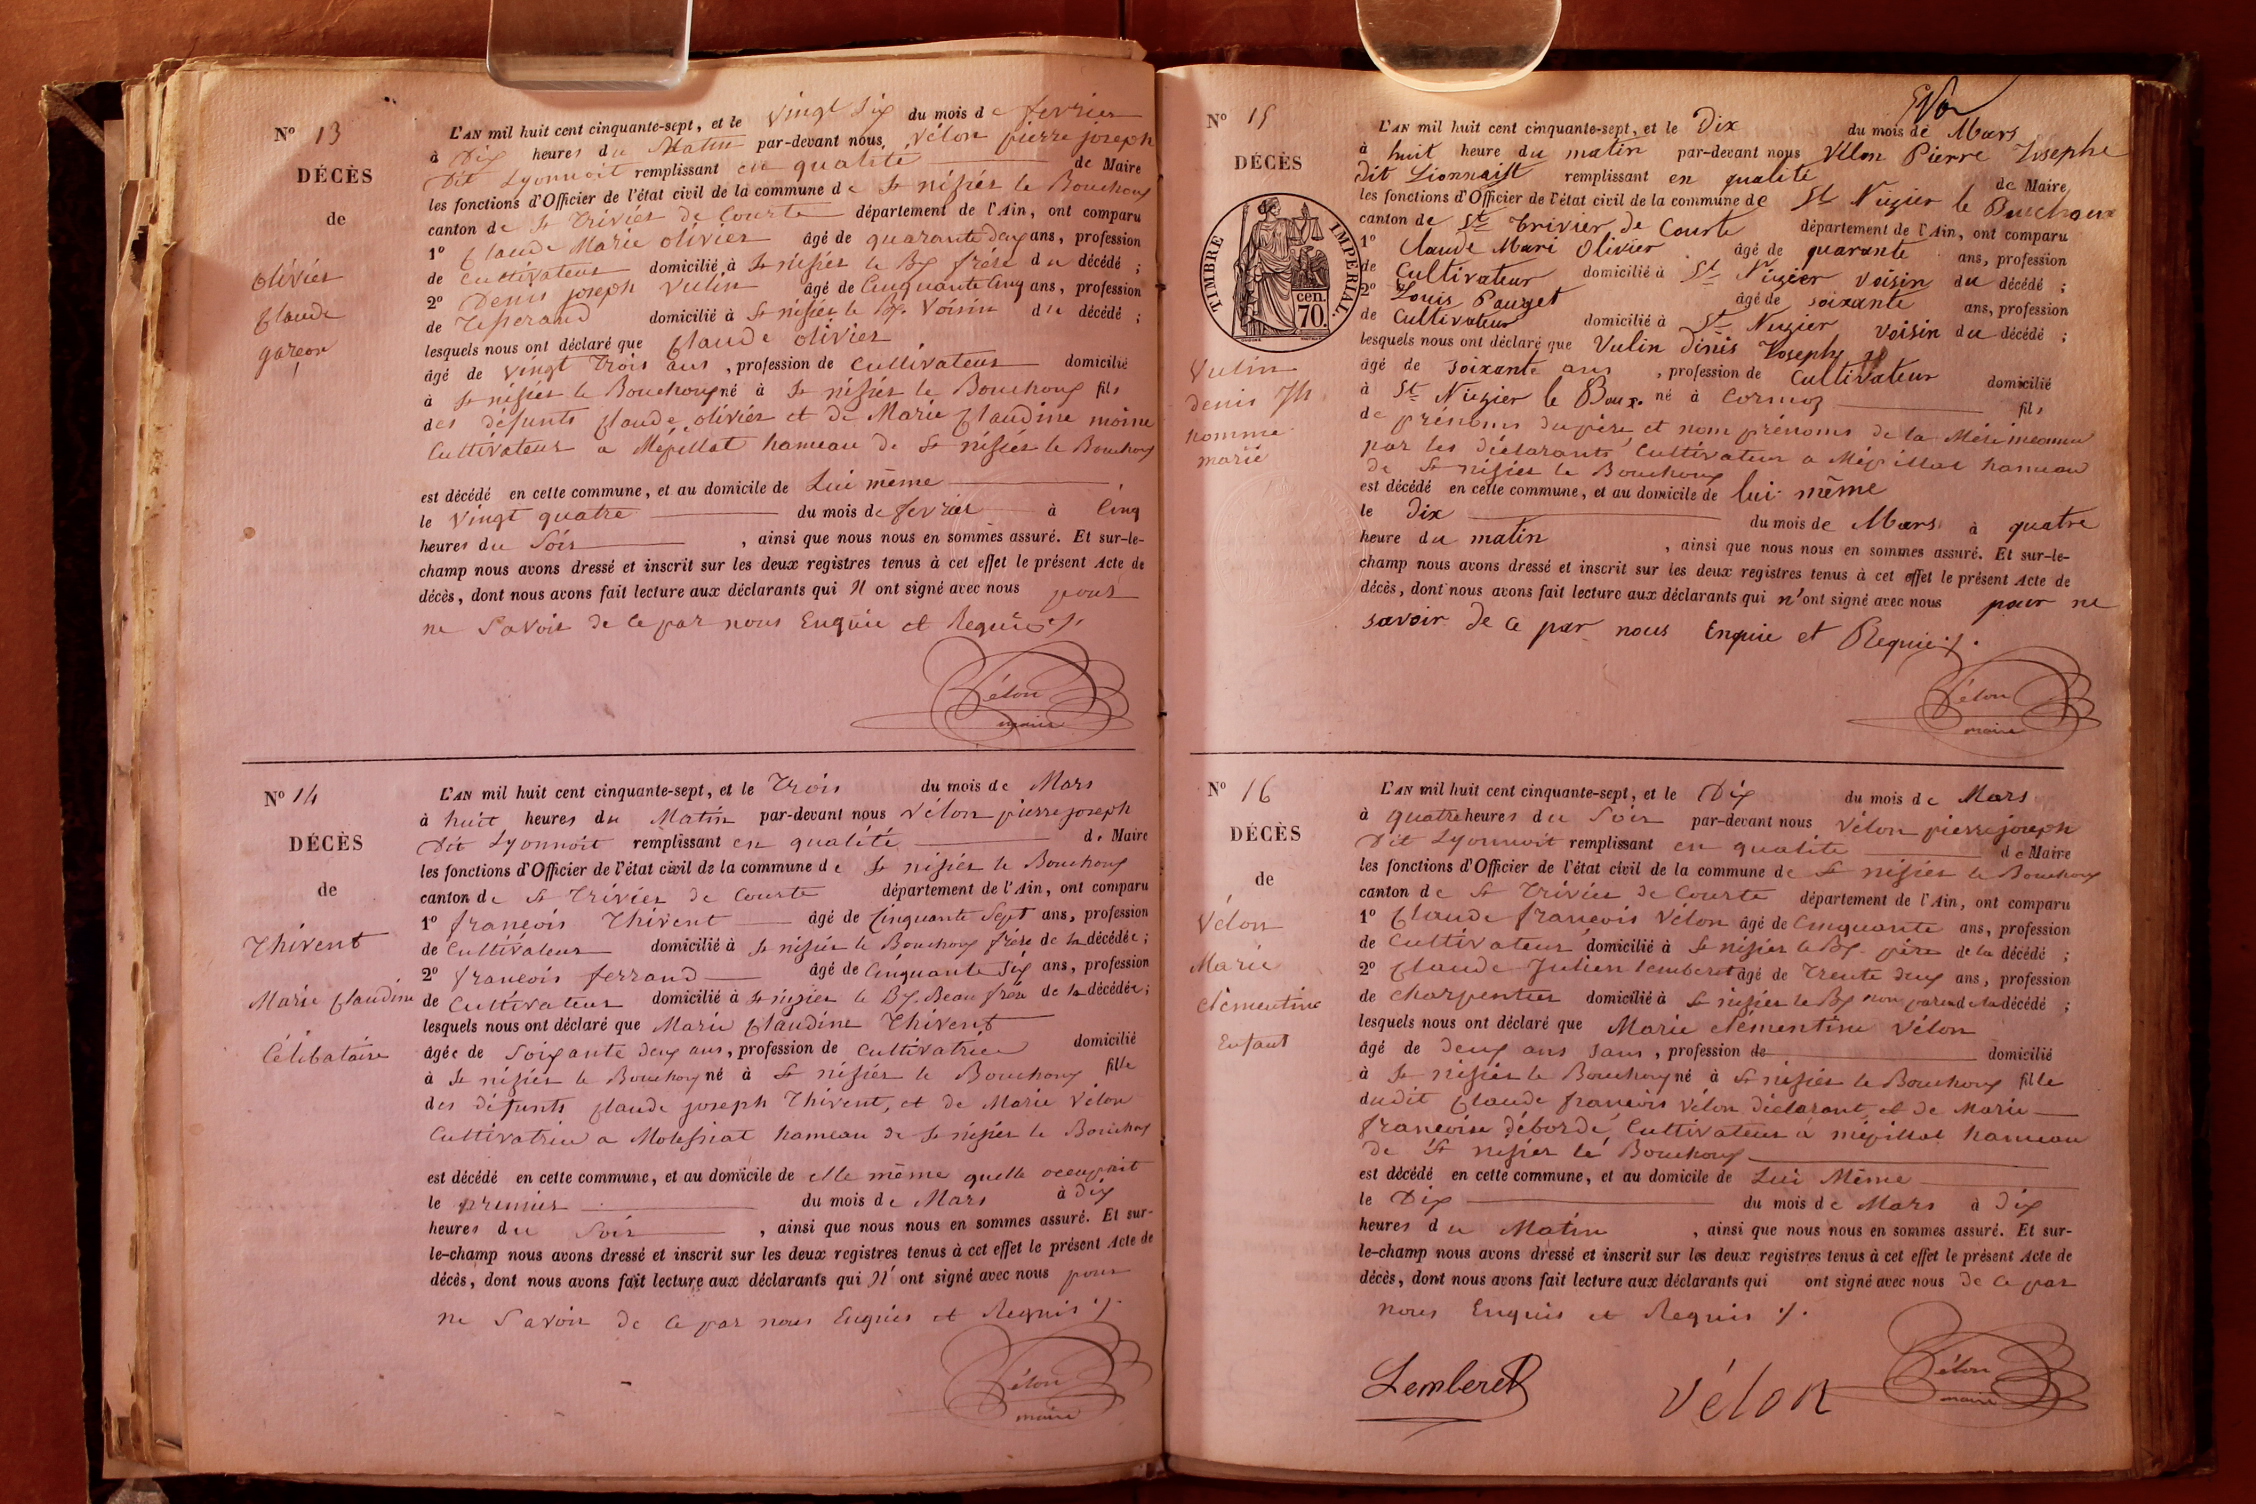 N° 13
DÉCÈS
de
Olivier
Claude
garçon
L'AN mil huit cent cinquante-sept, et le vingt six du mois de fevrier
à Dix heures du Matin par-devant nous, Vélon pierre joseph
Dit Lyonnoit remplissant en qualité de Maire
les fonctions d'Officier de l'état civil de la commune de St nisiér le Bouchoux
canton de St Triviér de Courte département de l'Ain, ont comparu
1° Claude Marie Olivier âgé de quarante deux ans, profession
de Cultivateur domicilié à St nisiér le Bx frére du décédé ;
2° Denis joseph Vulin âgé de Cinquante Cinq ans, profession
de Tisserand domicilié à St nisiér le Bx. Voisin du décédé ;
lesquels nous ont déclaré que Claude Olivier
âgé de vingt trois ans, profession de Cultivateur domicilié
à St nisiér le Bouchoux né à St nisiér le Bouchoux fils
des défunts Claude Olivier et de Marie Claudine moine
Cultivateur a Mépillat hameau de St nisiér le Bouchoux
est décédé en cette commune, et au domicile de Lui même
le vingt quatre du mois de fevrier à Cinq
heures du Soir, ainsi que nous nous en sommes assuré. Et sur-le-
champ nous avons dressé et inscrit sur les deux registres tenus à cet effet le présent Acte de
décès, dont nous avons fait lecture aux déclarants qui N ont signé avec nous pour
ne Savoir de Ce par nous Enquis et Requis ./.
Vélon
maire
N° 14
DÉCÈS
de
Thivent
Marie Claudine
Célibataire
L'AN mil huit cent cinquante-sept, et le Trois du mois de Mars
à huit heures du Matin par-devant nous Vélon pierre joseph
Dit Lyonnoit remplissant en qualité de Maire
les fonctions d'Officier de l'état civil de la commune de St nisiér le Bouchoux
canton de St Triviér de Courte département de l'Ain, ont comparu
1° françois Thivent âgé de Cinquante Sept ans, profession
de Cultivateur domicilié à St nisiér le Bouchoux frére de la décédée ;
2° françois ferrand âgé de Cinquante Six ans, profession
de Cultivateur domicilié à St nisiér le Bx. Beau frére de la décédée ;
lesquels nous ont déclaré que Marie Claudine Thivent
âgée de Soixante deux ans, profession de Cultivatrice domicilié
à St nisiér le Bouchoux né à St nisiér le Bouchoux fille
des défunts Claude joseph Thivent, et de Marie Vélon
Cultivatrice a Molefniat hameau de St nisiér le Bouchoux
est décédé en cette commune, et au domicile de elle même quelle occupait
le premier du mois de Mars à Dix
heures du Soir, ainsi que nous nous en sommes assuré. Et sur-
le-champ nous avons dressé et inscrit sur les deux registres tenus à cet effet le présent Acte de
décès, dont nous avons fait lecture aux déclarants qui N' ont signé avec nous pour
ne Savoir de Ce par nous Enquis et Requis ./.
Vélon
maire
N° 15
DÉCÈS
TIMBRE IMPÉRIAL.
70. cen.
Vulin
denis Jh
homme
marié
L'AN mil huit cent cinquante-sept, et le Dix du mois de Mars
à huit heure du matin par-devant nous Vélon Pierre Josephe
dit Lionnaist remplissant en qualité de Maire
les fonctions d'Officier de l'état civil de la commune de St Nizier le Bouchoux
canton de St Trivier de Courte département de l'Ain, ont comparu
1° Claude Mari Olivier âgé de quarante ans, profession
de Cultivateur domicilié à St Nizier voisin du décédé ;
2° Louis Pauget âgé de soixante ans, profession
de Cultivateur domicilié à St Nuzier voisin du décédé ;
lesquels nous ont déclaré que Vulin Dinis Josephe
âgé de soixante ans, profession de Cultivateur domicilié
à St Nizier le Boux. né à Cormoz fils
de prénoms du père et nom prénoms de la Mére inconnu
par les déclarants, Cultivateur a Mépillat hameau
de St nisiér le Bouchoux
est décédé en cette commune, et au domicile de lui même
le dix du mois de Mars à quatre
heure du matin, ainsi que nous nous en sommes assuré. Et sur-le-
champ nous avons dressé et inscrit sur les deux registres tenus à cet effet le présent Acte de
décès, dont nous avons fait lecture aux déclarants qui n'ont signé avec nous pour ne
savoir de Ce par nous Enquie et Requie ./.
Vélon
maire
N° 16
DÉCÈS
de
Vélon
Marie
Clémentine
Enfant
L'AN mil huit cent cinquante-sept, et le Dix du mois de Mars
à quatre heures du Soir par-devant nous Vélon pierre joseph
Dit Lyonnoit remplissant en qualité de Maire
les fonctions d'Officier de l'état civil de la commune de St nisiér le Bouchoux
canton de St Triviér de Courte département de l'Ain, ont comparu
1° Claude françois Vélon âgé de Cinquante ans, profession
de Cultivateur domicilié à St nisiér le Bx. pére de la décédé ;
2° Claude Julien Lemberet âgé de Trente deux ans, profession
de Charpentier domicilié à St nisiér le Bx non parend de la décédé ;
lesquels nous ont déclaré que Marie Clémentine Vélon
âgé de deux ans Sans, profession de domicilié
à St nisiér le Bouchoux né à St nisiér le Bouchoux fille
dudit Claude françois Vélon déclarant, et de Marie
françoise déborde Cultivateur à mépillat hameau
de St nisiér le Bouchoux
est décédé en cette commune, et au domicile de Lui Même
le Dix du mois de Mars à Dix
heures du Matin, ainsi que nous nous en sommes assuré. Et sur-
le-champ nous avons dressé et inscrit sur les deux registres tenus à cet effet le présent Acte de
décès, dont nous avons fait lecture aux déclarants qui ont signé avec nous de Ce par
nous Enquis et Requis ./.
Lemberet
Vélon
Vélon
maire